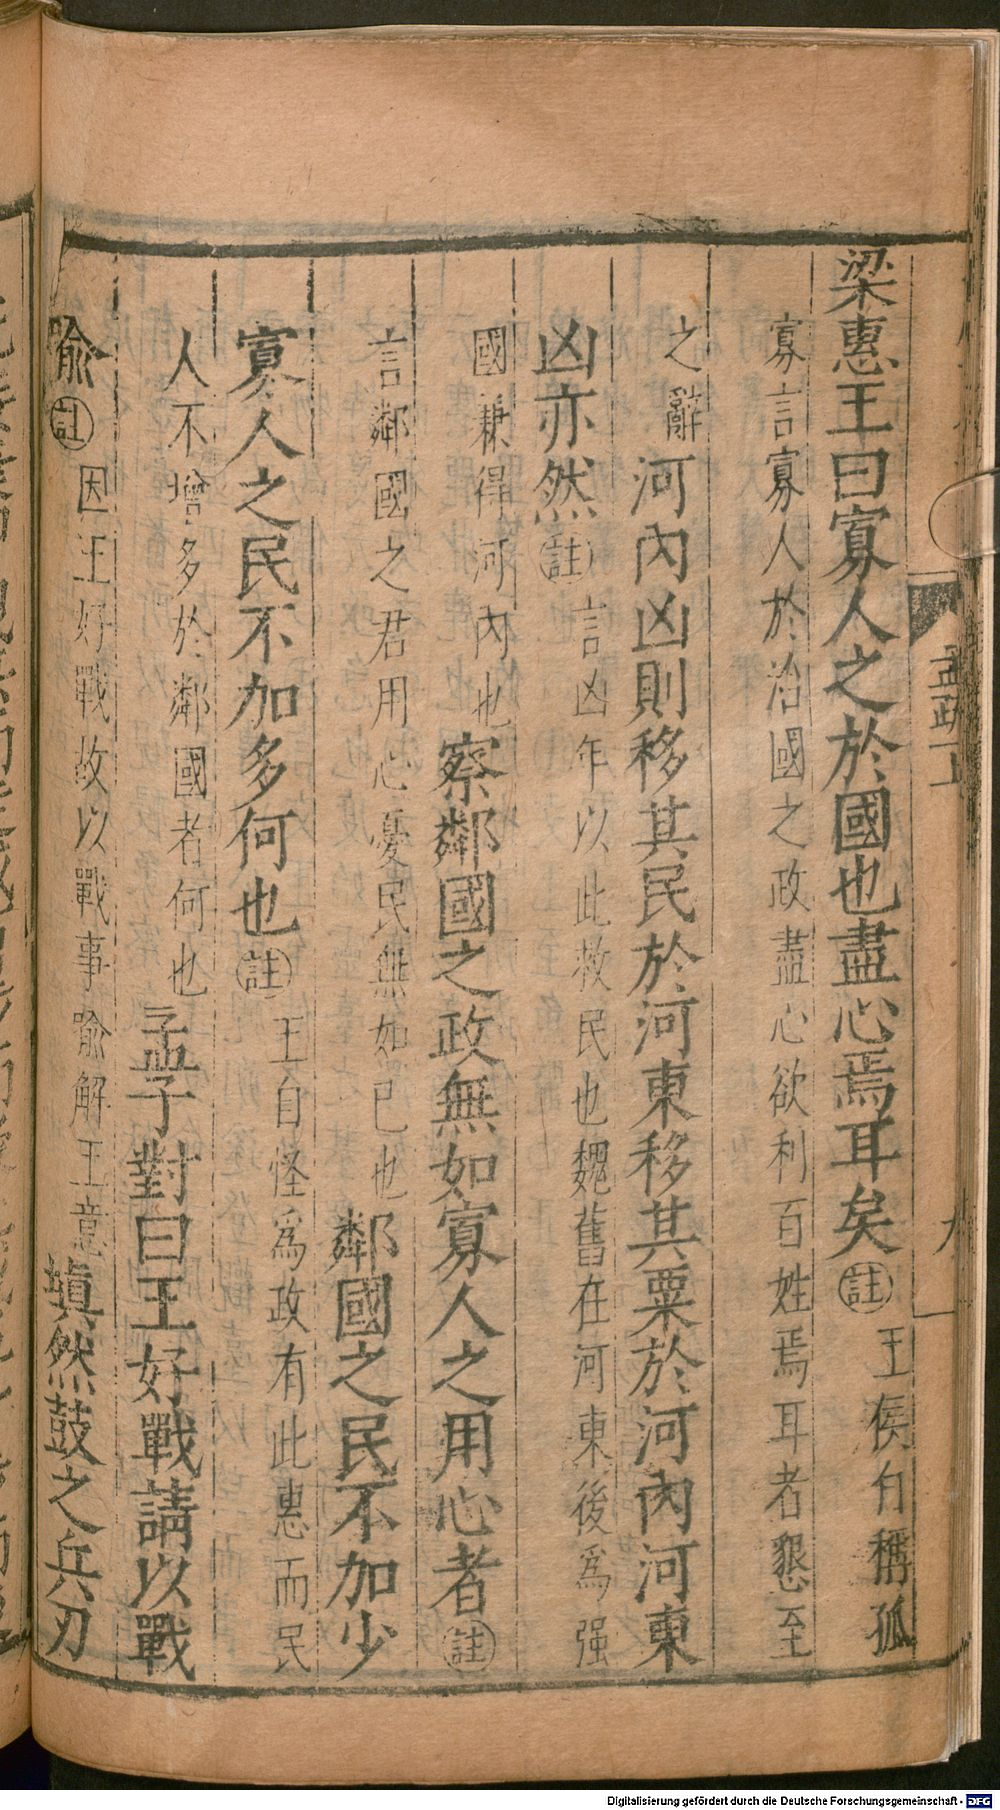 梁惠王曰寡人之於國也盡心焉耳矣註王侯自稱孤
寡言寡人於治國之政盡心欲利百姓焉耳者懇至
之辭河內凶則移其民於河東移其粟於河內河東
凶亦然註言凶年以此救民也魏舊在河東後爲强
國兼得河內也察鄰國之政無如寡人之用心者註
言鄰國之君用心憂民無如己也鄰國之民不加少
寡人之民不加多何也註王自怪爲政有此惠而民
人不增多於鄰國者何也孟子對曰王好戰請以戰
喻註因王好戰故以戰事喻解王意塡然鼓之兵刃
孟疏一上
九
Digitalisierung gefördert durch die Deutsche Forschungsgemeinschaft - DFG